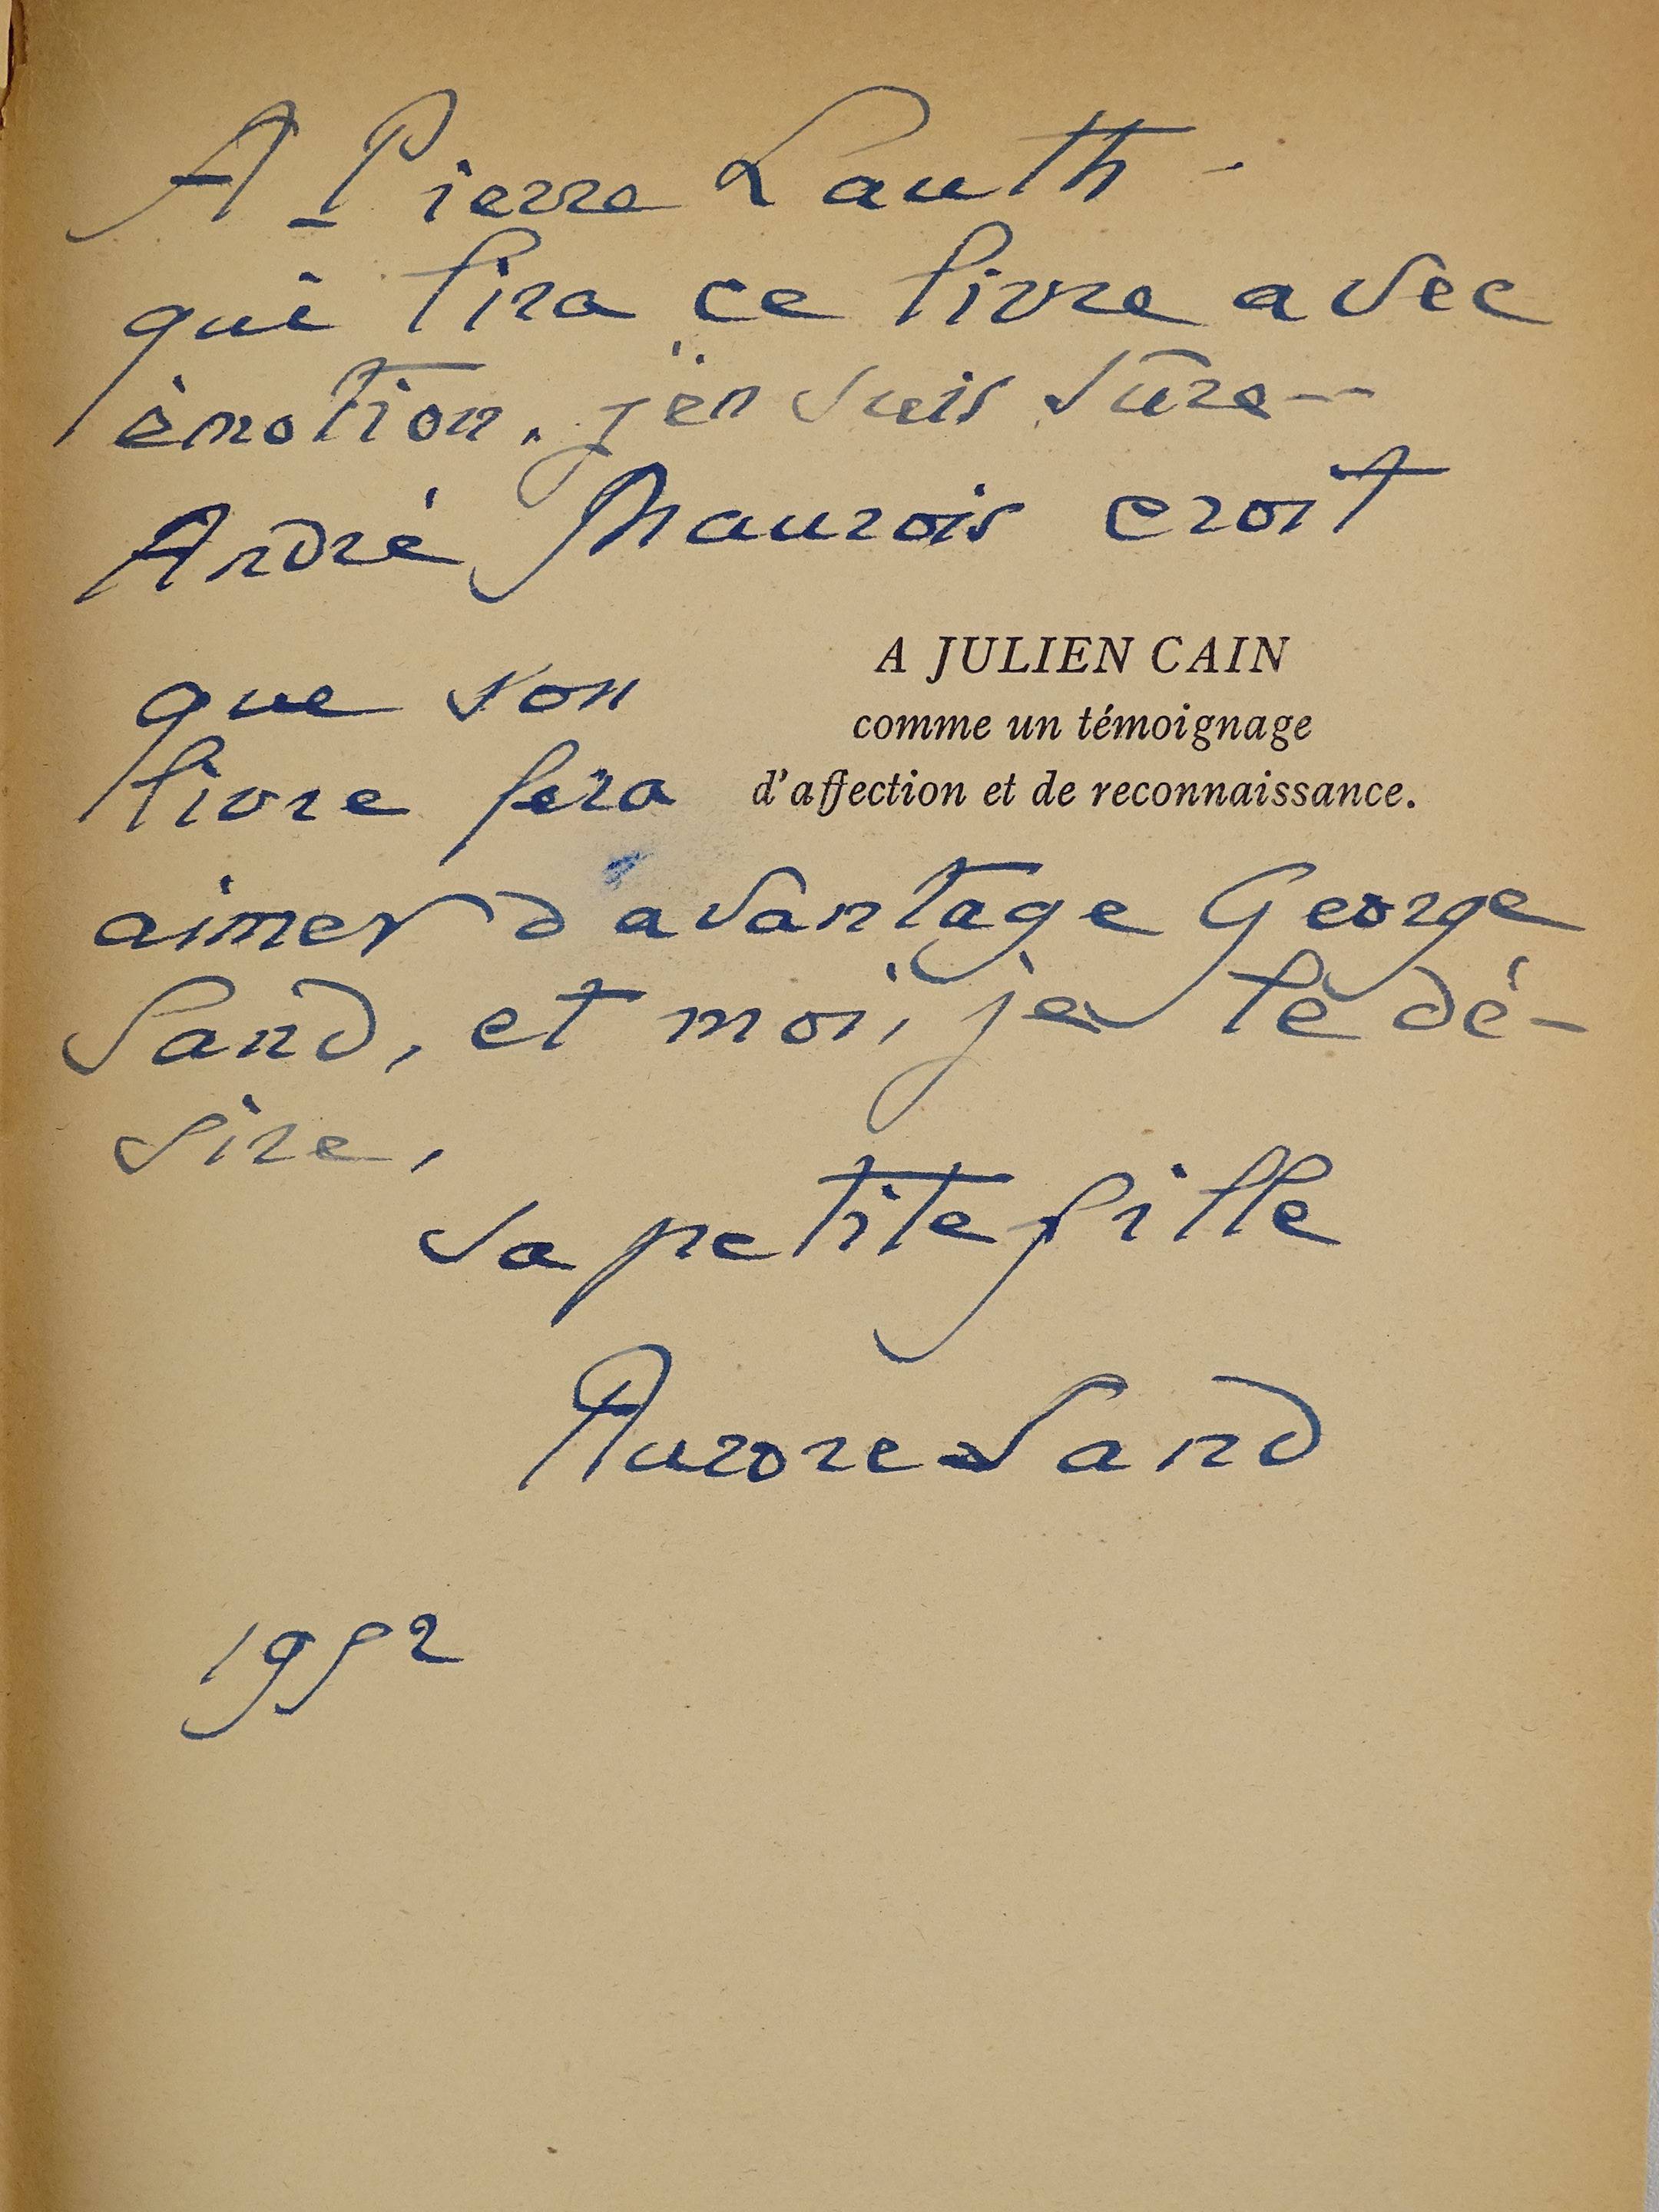 A Pierre Lauth -
qui lira ce livre avec
émotion. j'en suis sûre—
André Maurois croit
A JULIEN CAIN
comme un témoignage
d'affection et de reconnaissance.
que son
livre fera
aimer davantage George
Sand, et moi, je le dé-
sire,
sa petite fille
Aurore Sand
1952